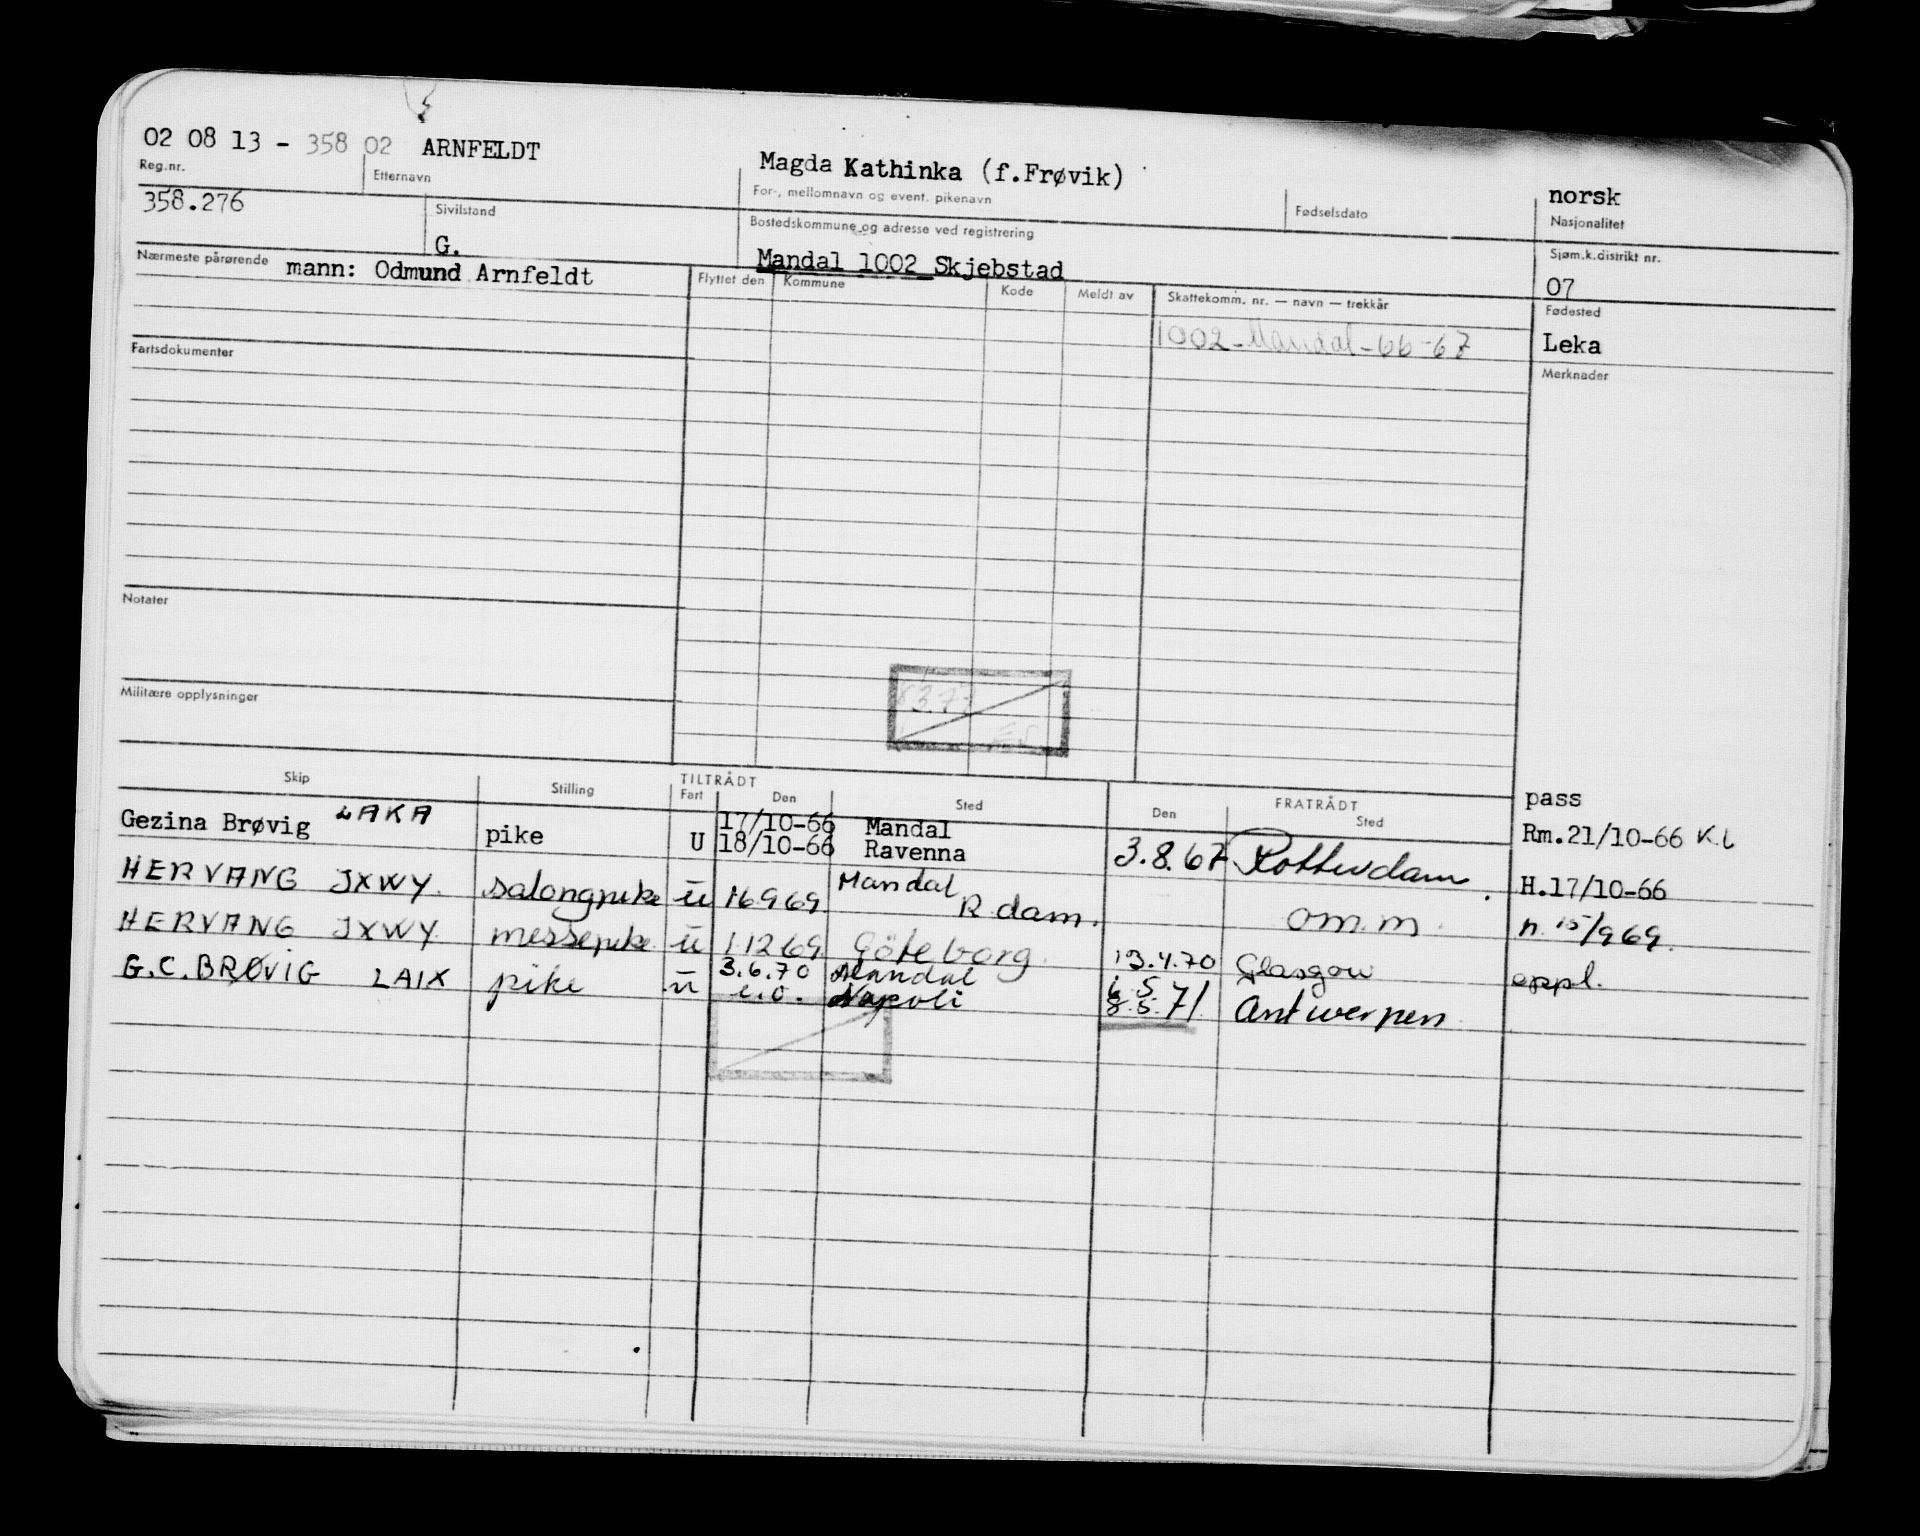 02 08 13 - 358 02 ARNFELDT
Magda Kathinka (f.Frøvik)
norsk
Reg.nr.
Etternavn
For-, mellomnavn og event. pikenavn
Fødselsdato
Nasjonalitet
358.276
Sivilstand
G.
Bostedskommune og adresse ved registrering
Mandal 1002 Skjebstad
Sjøm.k.distrikt nr.
07
Nærmeste pårørende mann: Odmund Arnfeldt
Flyttet den
Kommune
Kode
Meldt av
Skattekomm. nr. — navn — trekkår
Fødested
1002 - Mandal - 66-67
Leka
Fartsdokumenter
Merknader
Notater
Militære opplysninger
Skip
Stilling
TILTRÅDT
Fart
Den
Sted
FRATRÅDT
Den
Sted
pass
Gezina Brøvig LAKA pike U 17/10-66 Mandal
18/10-66 Ravenna 3.8.67 Rotterdam Rm.21/10-66 K.L
HERVANG JXWY. salongpike ū 16969 Mandal
R.dam. om.m. H.17/10-66
HERVANG JXWY messepike ū 1.1269 Göteborg 13.4.70 Glasgow n. 15/969.
G.C.BRØVIG LAIX pike ū 3.6.70 Mandal
u.o. Napoli 8.5.71 Antwerpen oppl.